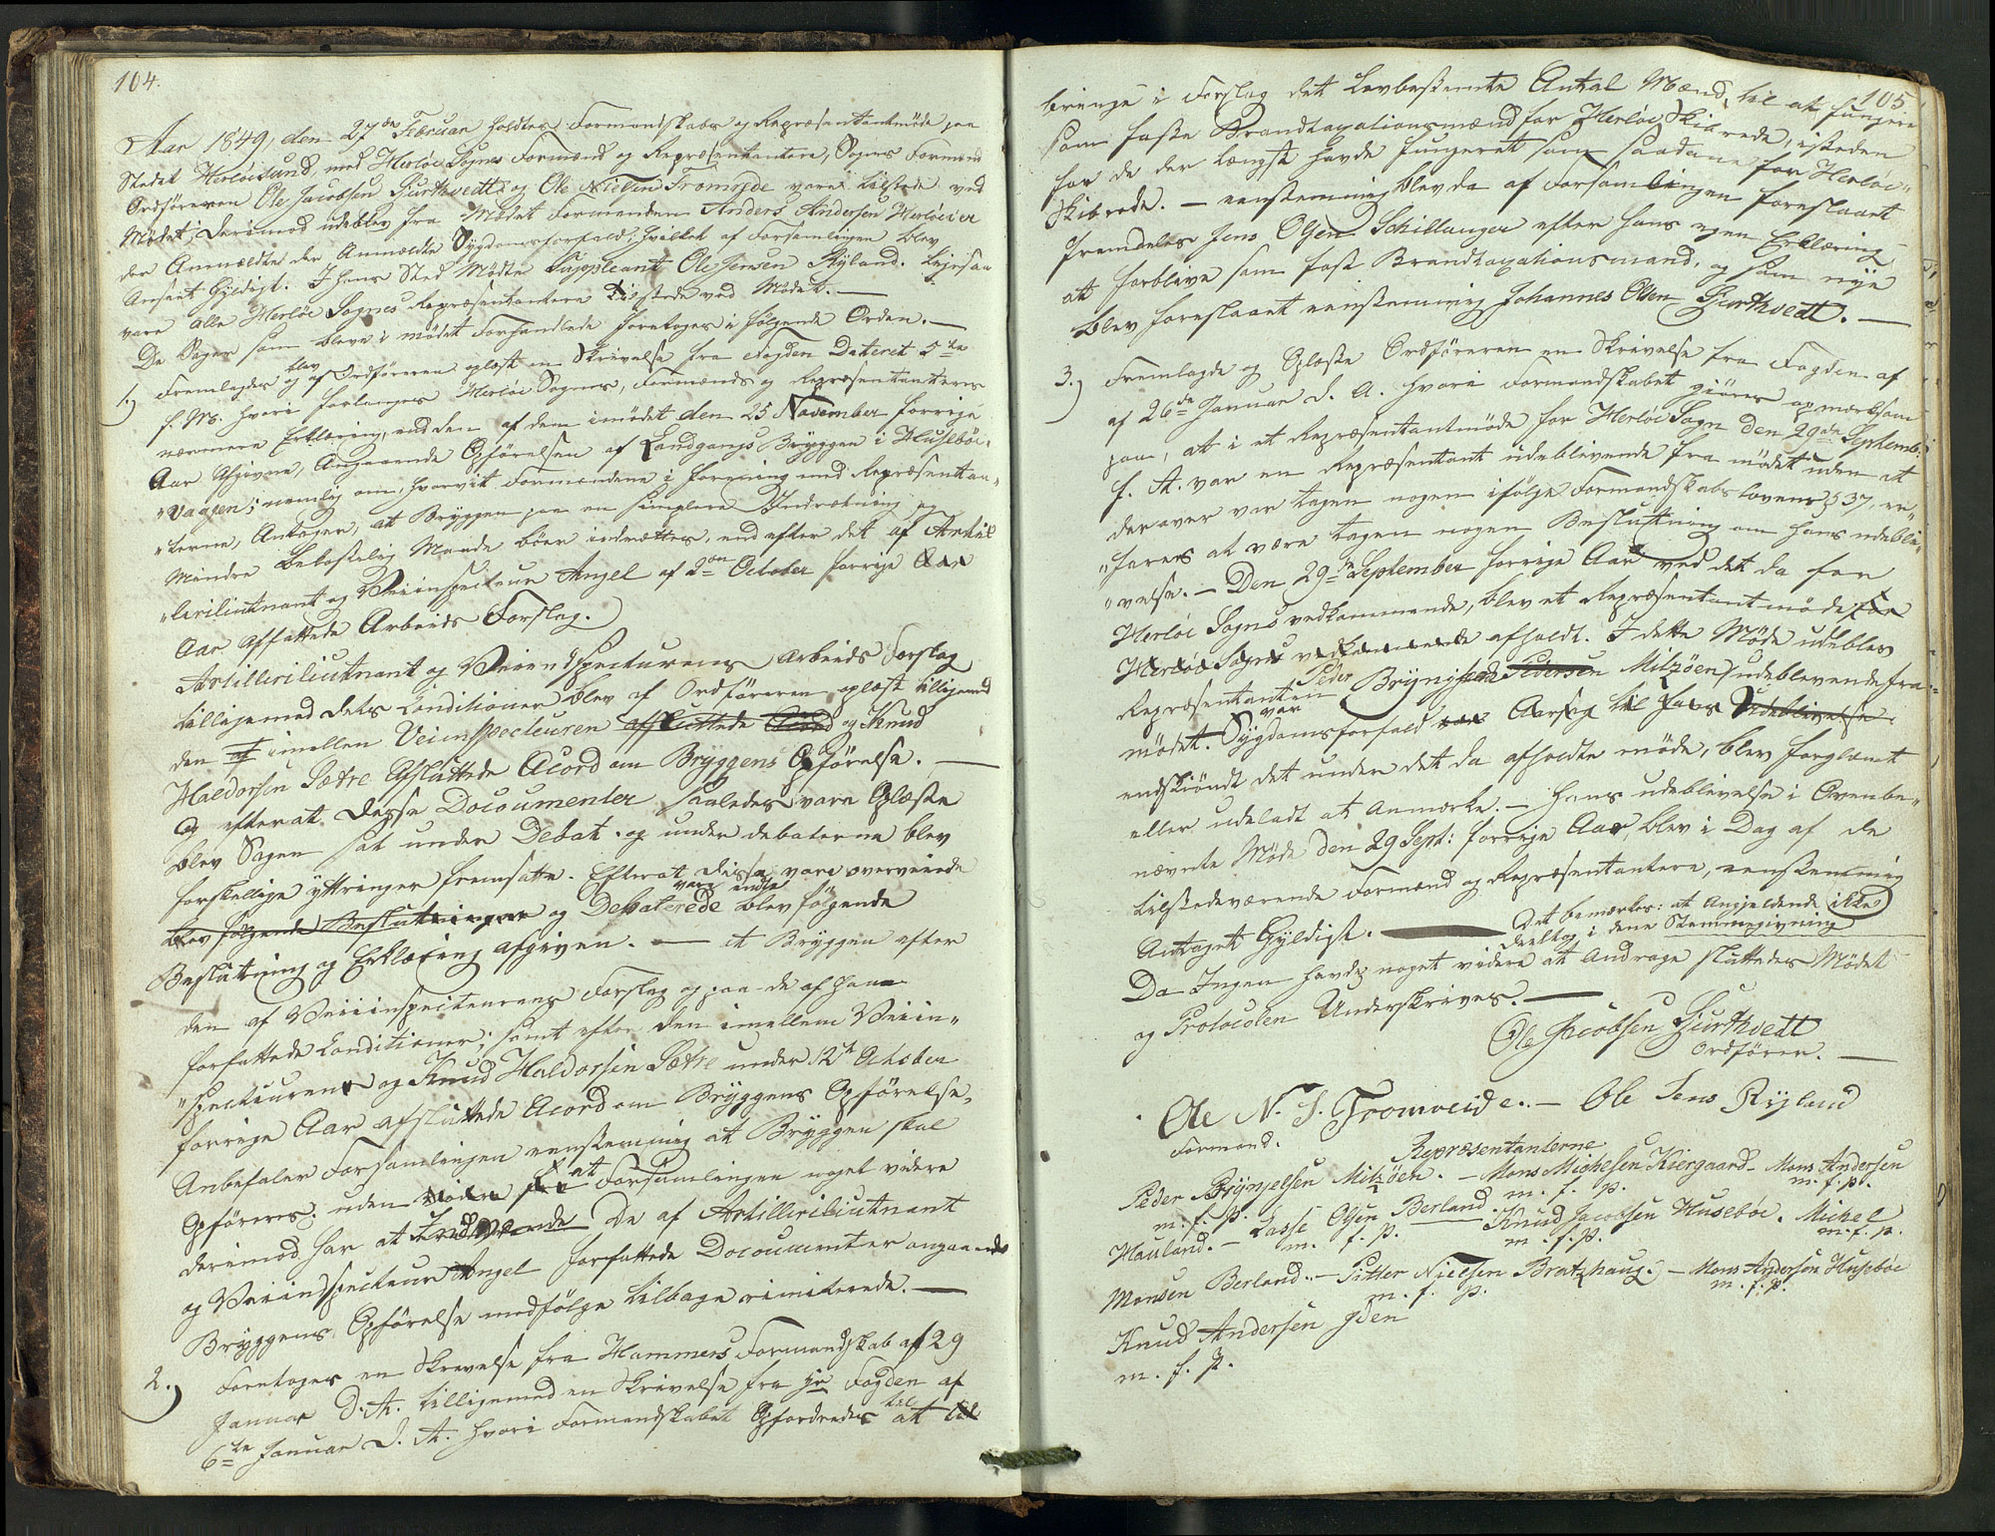 104.
Aar 1849, den 27de Februar holdtes Formandskabs og Repræsentantmøde paa
Stedet Herløesund, med Herløe Sogns Formænd og Repræsentantere, Sogns Formænd
Ordføreren Ole Jacobsen Gurthvedt og Ole Nielsen Tromvede vare tilstede ved
Mødet; derimod udeblev fra Mødet Formanden Anders Andersen Herløeier
der Anmældte Sygdomsforfald; hvilket af Forsamlingen blev
Anseet Gyldigt. I hans Sted Mødte Suppleant Ole Jensen Ryland. Ligesaa
vare alle Herløe Sognes Repræsentantere tilstede ved Mødet. —
De Sager som bleve i mødet Forhandlede foretoges i følgende Orden. —
1.) Fremlagdes og blev af Ordføreren oplæst en Skrivelse fra Fogden Dateret 5te
f. M. hvori forlanges Herløe Sognes, Formænds og Repræsentanters
nærmere Erklæring, end den af dem i mødet den 25 November forrige
Aar Afgivne, Angaaende Opførelsen af Landgangs Bryggen i Husebøe-
"Vaagen; nemlig om, hvorvit Formændene i forening med Repræsentan-
"terne, Antager, at Bryggen paa en simplere Indretning og
Mindre bekostelig Maade bør indrættes, end efter det af Artil
"leriliutnant og Veiinspecteur Angel af 2den October forrige Aar
Aar Affattede Arbeids Forslag.
Artilleriliutnant og Veiinspecteurens Arbeids Forslag
tilligemed dets Conditioner blev af Ordføreren oplæst tilligemed
den af imellem Veiinspecteuren afsluttede Acord og Knud
Haldorsen Sætre Afsluttede Acord om Bryggens Opførelse. —
Og efterat disse Documenter saaledes vare Oplæste
blev Sagen sat under Debat. og under debaterne blev
forskellige yttringer fremsatte. Efterat disse vare overveiede
blev følgende Beslutninger og Debaterede vare endte blev følgende
Beslutning og Erklæring afgiven. — at Bryggen efter
den af Veiinspecteurens Forslag og paa de af ham
forfattede Conditioner; samt efter den imellem Veiin-
"specteuren og Knud Haldorsen Sætre under 12te October
forrige Aar afsluttede Acord om Bryggens Opførelse,
Anbefaler Forsamlingen eenstemmig at Bryggen skal
Opføres; uden at Forsamlingen noget videre
derimod har at Indvende De af Artilleriliutnant
og Veiinspecteur Angel forfattede Documenter angaaende
Bryggens Opførelse medfølge tilbage rimiterede. —
2.) Foretoges en Skrivelse fra Hammers Formandskab af 29
Januar d. A. tilligemed en Skrivelse fra Hr Fogden af
6te Januar d. A. hvori Formandskabet Opfordredes til at til
105
bringe i Forslag det Lovbestemte Antal Mænd, til at fungere
som faste Brandtaxationsmænd for Herløe Skibrede, isteden
for de der længst havde fungeret som saadanne for Herløe
Skibrede. — eenstemmig blev da af Forsamlingen foreslaaet
fremdeles Jens Olsen Schillanger efter hans egen Erklæring
at forblive som fast Brandtaxationsmand, og som nye
blev foreslaaet eenstemmig Johannes Olsen Gurthvedt. —
3.) Fremlagde og Oplæste Ordføreren en Skrivelse fra Fogden af
af 26de Januar d. A. hvori Formandskabet giøres opmærksom
paa, at i et Repræsentantmøde for Herløe Sogn den 29de Septemb.
f. A. var en Repræsentant udeblivende fra mødet uden at
derover var tagen nogen ifølge Formandskabslovens § 37, er-
"fares at være tagen nogen Beslutning om hans udebli-
"velse. — Den 29de September forrige Aar ved det da for
Herløe Sogns vedkommende, blev et Repræsentantmøde for
Herløe Sogns vedkommende afholdt. I dette Møde udeblev
Repræsentanten Peder Brynjelsen Pedersen Milzøen, udeblevende fra
mødet. Sygdomsforfald var var Aarsag til hans Udeblivelse
endskiøndt det under det da afholdte møde, blev forglemt
eller udeladt at Anmærke. — Hans udeblivelse i Ovenbe-
nævnte Møde den 29 Sept: forrige Aar, blev i Dag af de
tilstedeværende Formænd og Repræsentantere, eenstemmig
Antaget Gyldigt. — Det bemærkes: at Angjeldende ikke
deeltog i dene Stemmegivning
Da Ingen havde noget videre at Andrage sluttedes Mødet
og Protocolen Underskrives. —
Ole Jacobsen Gurthvedt
Ordfører. —
Ole N. S. Tromveide. — Ole Jens Ryland
Formænd.
Repræsentanterne
Peder Brynjelsen Milzøen. — Mons Michelsen Kiergaard — Mons Andersen
m. f. P. m. f. p. m. f. p.
Hauland. — Lasse Olsen Berland — Knud Jacobsen Husebøe. Michel
m. f. P. m. f. P. m. f. p.
Monsen Berland. — Petter Nielsen Bratzhaug. — Mons Andersen Husebøe
m. f. p. m. f. P.
Knud Andersen Yden
m. f. P.